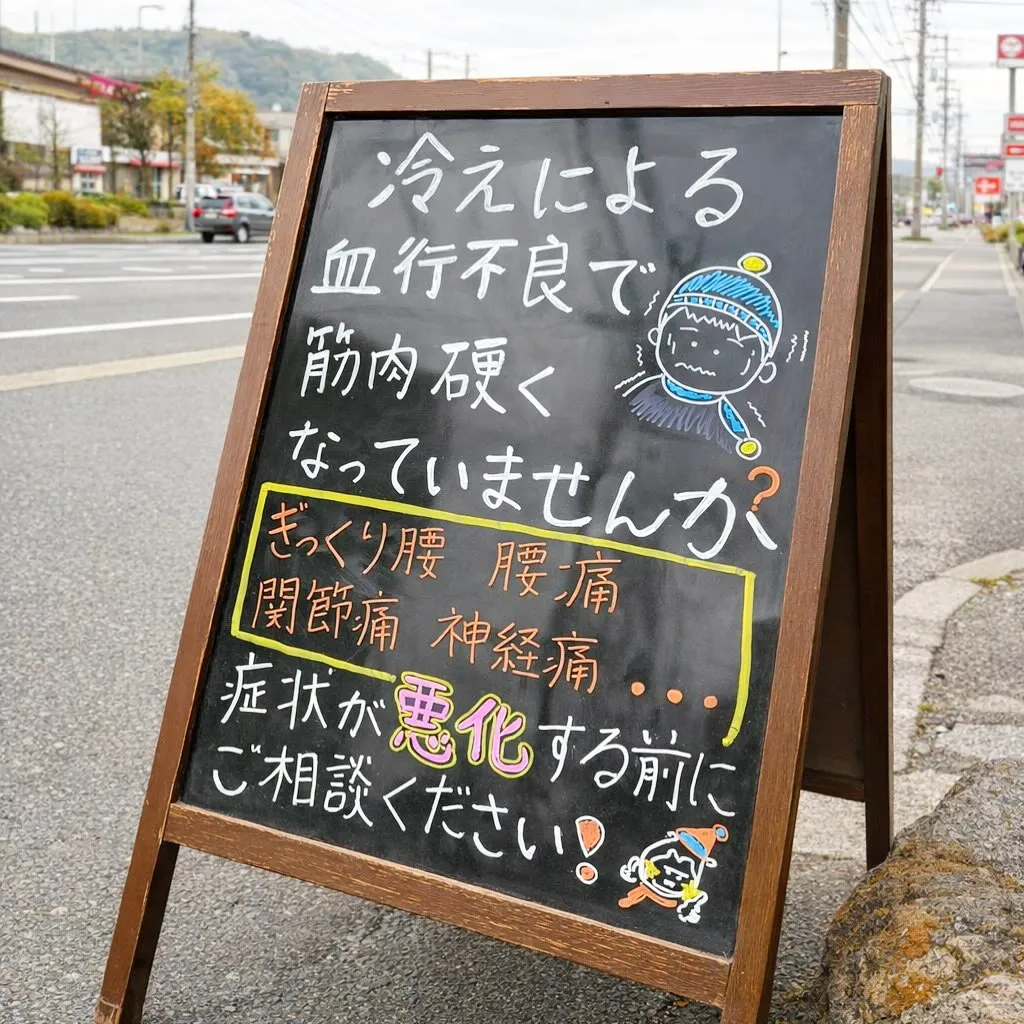 冷えによる
血行不良で
筋肉硬く
なっていませんか?
ぎっくり腰 腰痛
関節痛 神経痛...
症状が悪化する前に
ご相談ください!